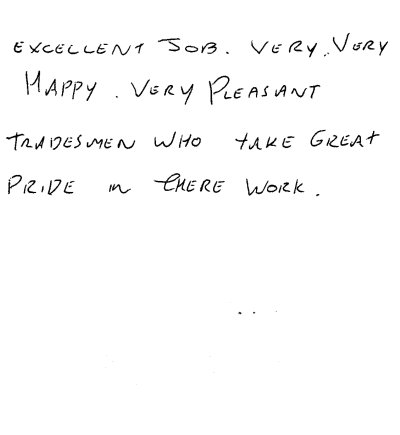 EXCELLENT JOB. VERY, VERY
HAPPY. VERY PLEASANT
TRADESMEN WHO TAKE GREAT
PRIDE IN THERE WORK.